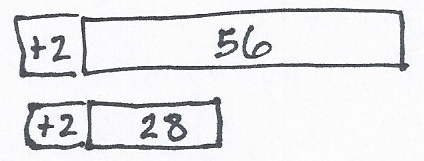 +2 56
+2 28